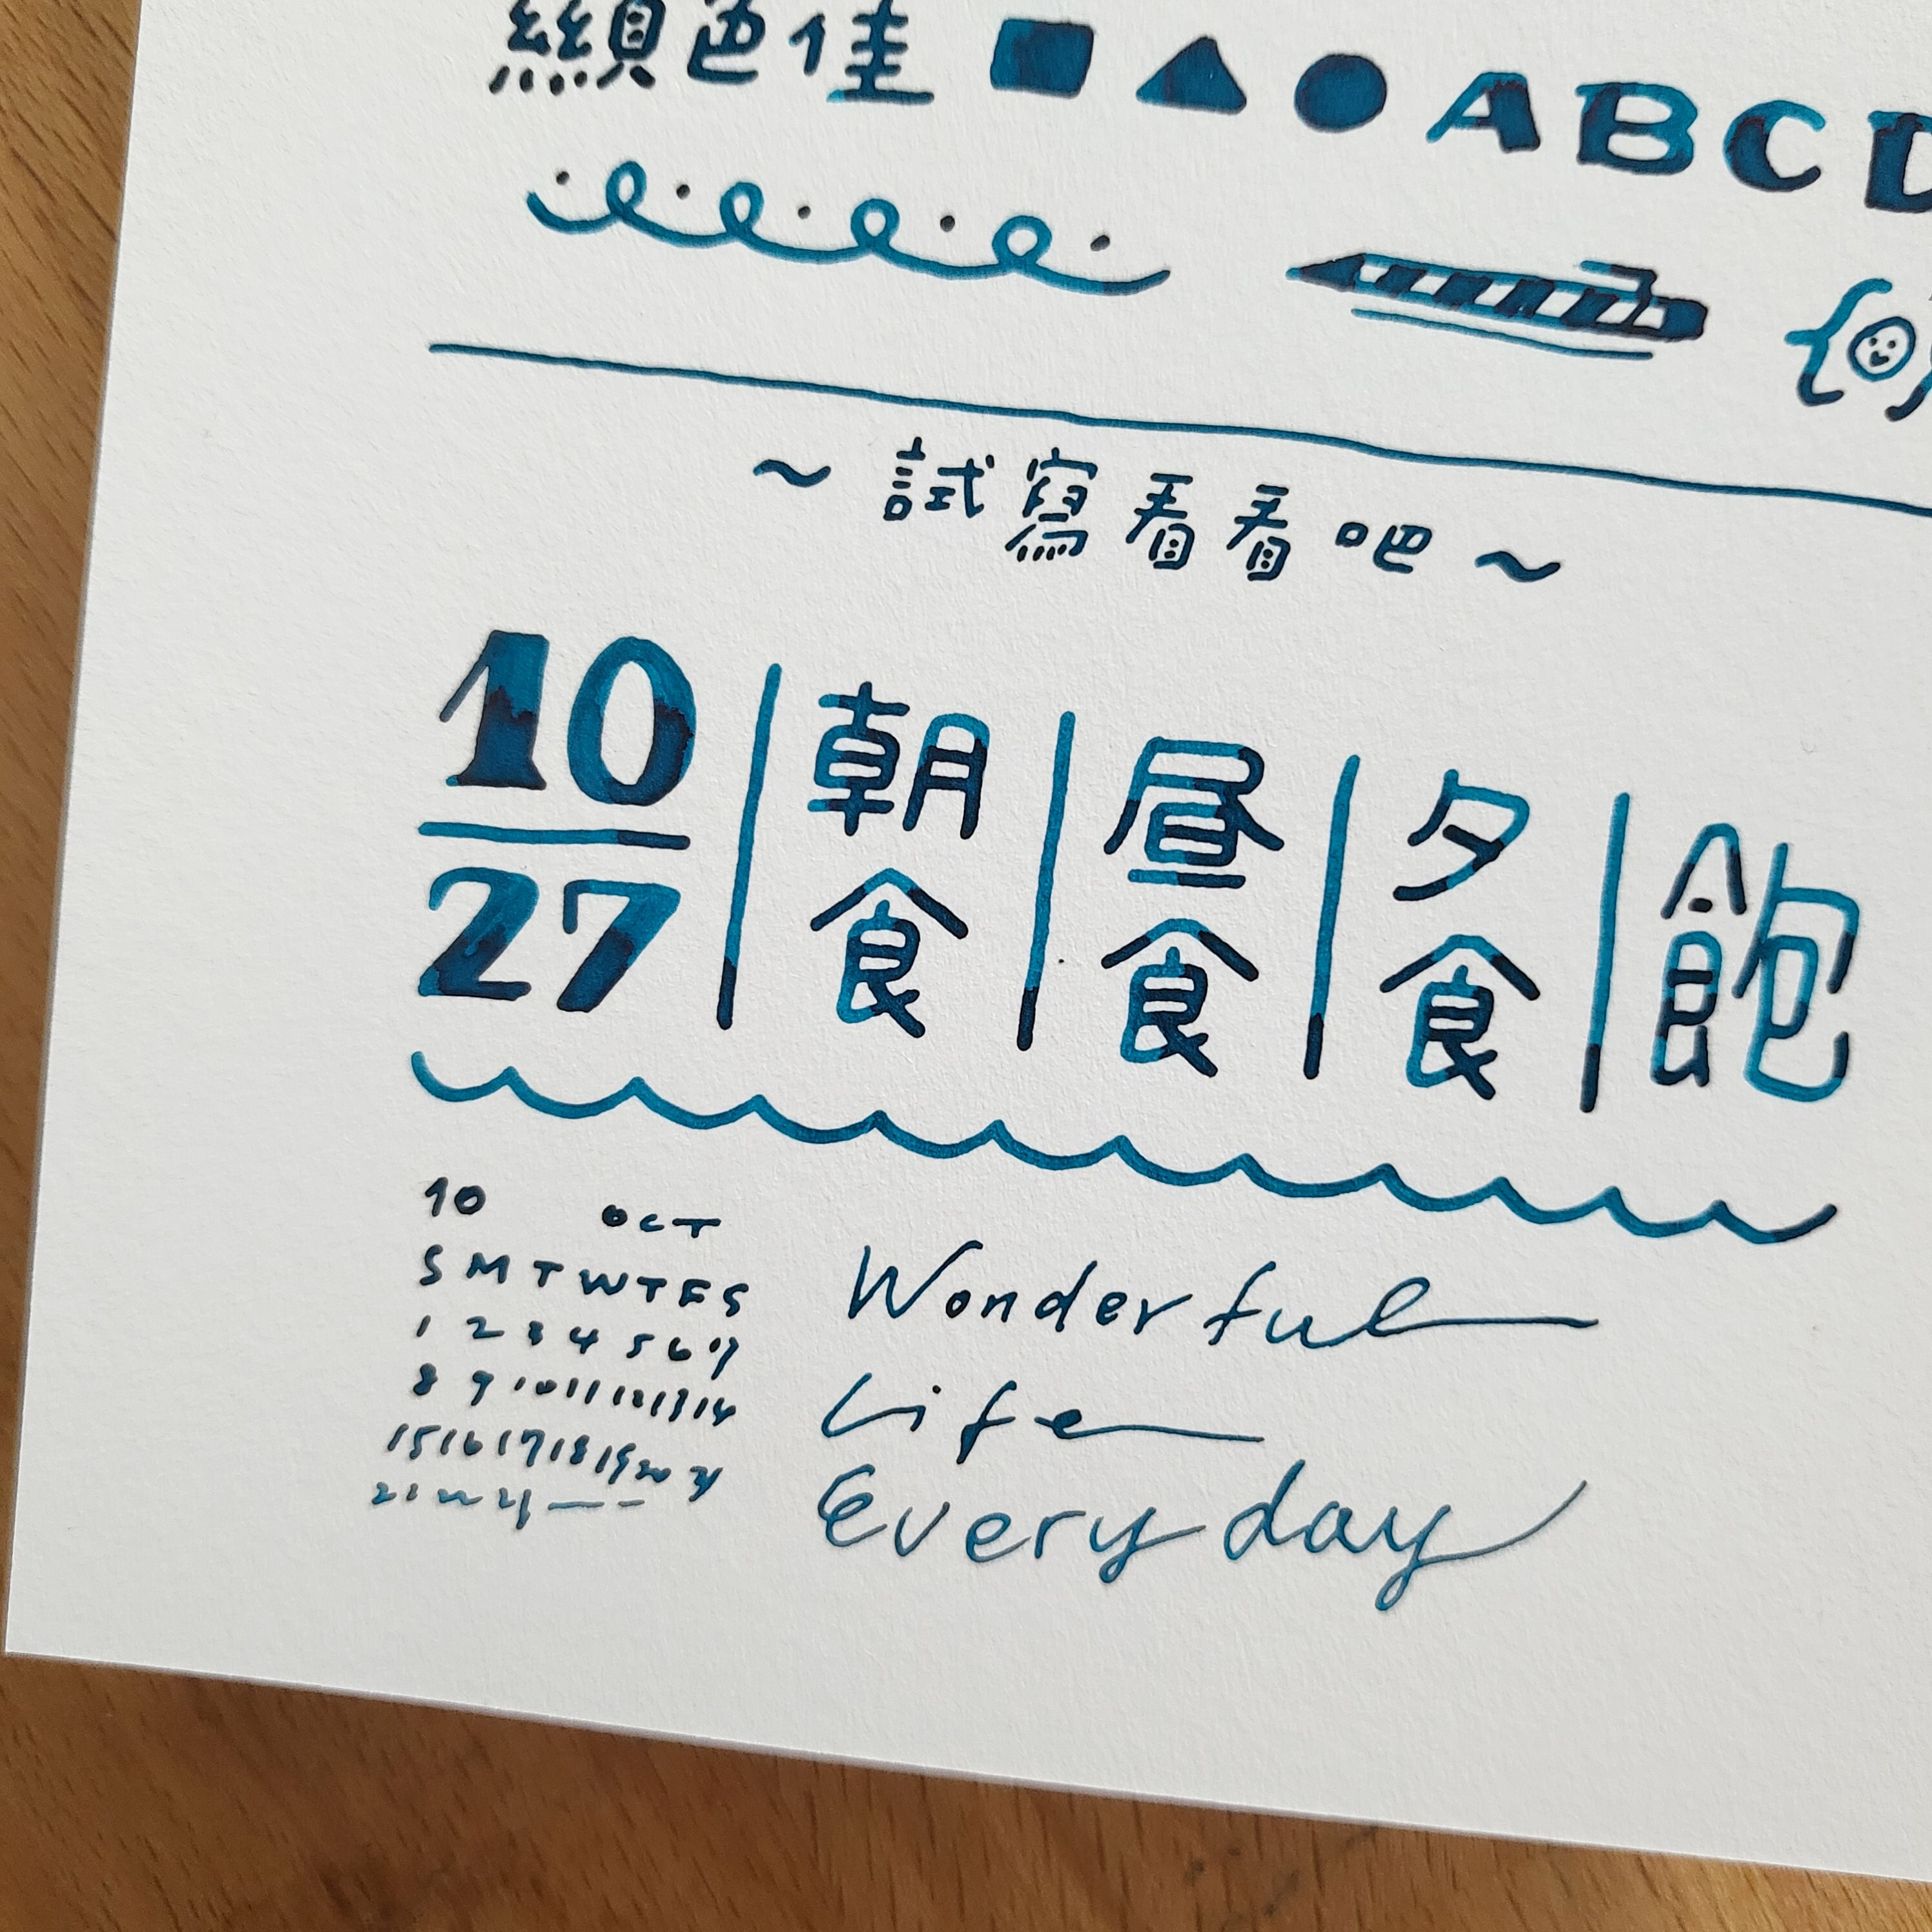 顯色佳 ABCD
~試寫看看吧~
10
27
朝食
昼食
夕食
飽
10 OCT
S M T W T F S
1 2 3 4 5 6 7
8 9 10 11 12 13 14
15 16 17 18 19 20 21
Wonderful
Life
Everyday